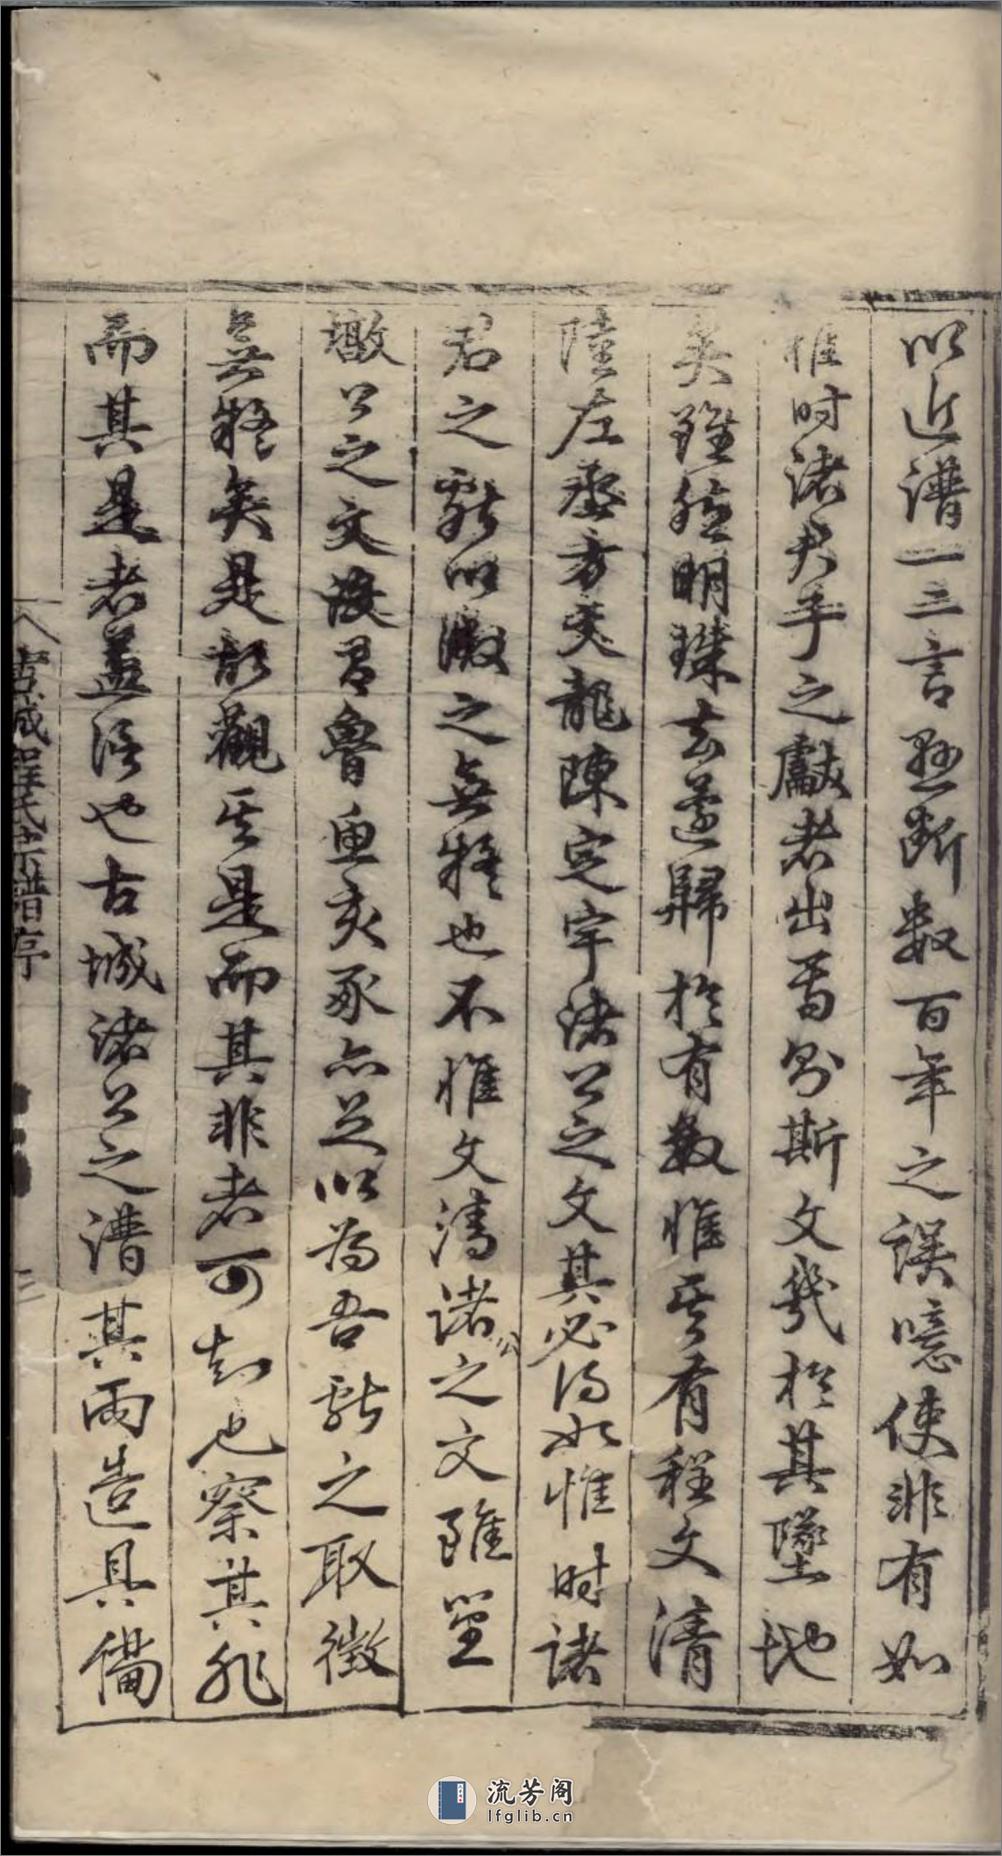 以近譜一二言懸斷數百年之誤噫使非有如
惟时諸君子之獻者出焉則斯文幾於其墜地
矣雖然明珠去還歸於有數惟其有程文清
陸左丞方夾龍陳定宇諸公之文其必得如惟时諸
君之獻以徵之無疑也不惟文清諸公之文雖望
墩公之文没有魯魚亥豕亦足以為吾獻之取徵
無疑矣是故觀其是而其非者可知也察其非
而其是者益信也古城諸公之譜其兩造具備
古城程氏宗譜序
三
流芳阁
lfglib.cn